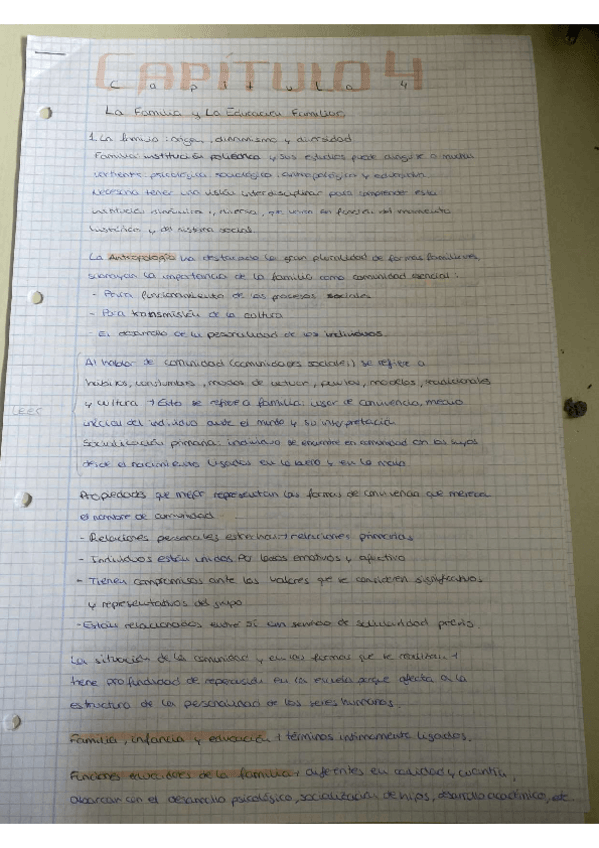 CAPÍTULO 4
Capítulo 4
La Familia y La Educación Familiar
1. La familia: origen, dinamismo y diversidad
Familia: institución polisémica y sus estudios puede dirigirse a muchas
vertientes: psicológica sociológica antropológica y educación.
Necesario tener una visión interdisciplinar para comprender esta
institución dinámica, que varían en función del momento
histórico y del sistema social.
La Antropología ha destacado la gran pluralidad de formas familiares,
subrayan la importancia de la familia como comunidad esencial:
- Para funcionamiento de los procesos sociales
- Para transmisión de la cultura
- El desarrollo de la personalidad de los individuos.
Al hablar de comunidad (comunidades sociales) se refiere a
hábitos, costumbres, modos de actuar, pautas, modelos, tradicionales
y cultura → Esto se refiere a familia: lugar de convivencia, medio
Leer
inicial del individuo ante el mundo y su interpretación
Socialización primaria: individuo se encuentra en comunidad con los suyos
desde el nacimiento ligados en lo bueno y en lo malo
Propiedades que mejor representan las formas de convivencia que merecen
el nombre de comunidad:
- Relaciones personales estrechas → relaciones primarias
- Individuos están unidos por lazos emotivos y afectivo
- Tienen compromisos ante los valores que se consideren significativos
y representativos del grupo
- Están relacionados entre sí con sentido de solidaridad previo.
La situación de la comunidad y en las formas que se realizan →
tiene profundidad de repercusión en la escuela porque afecta a la
estructura de la personalidad de los seres humanos.
Familia, infancia y educación → términos íntimamente ligados.
Funciones educadores de la familia → diferentes en calidad y cuantía,
abarcan con el desarrollo psicológico, socialización de hijos, desarrollo académico, etc.